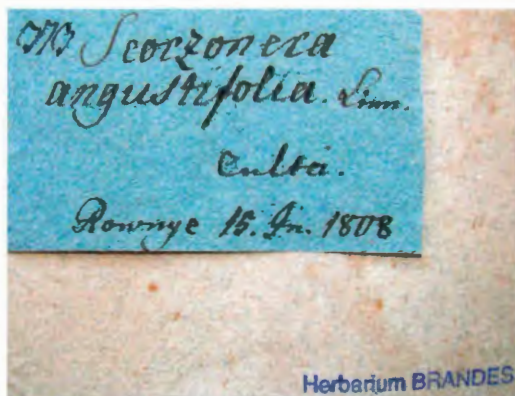 Scorzonera
angustifolia. Linn.
Culta.
Rownye 15. Jn. 1808
Herbarium BRANDES